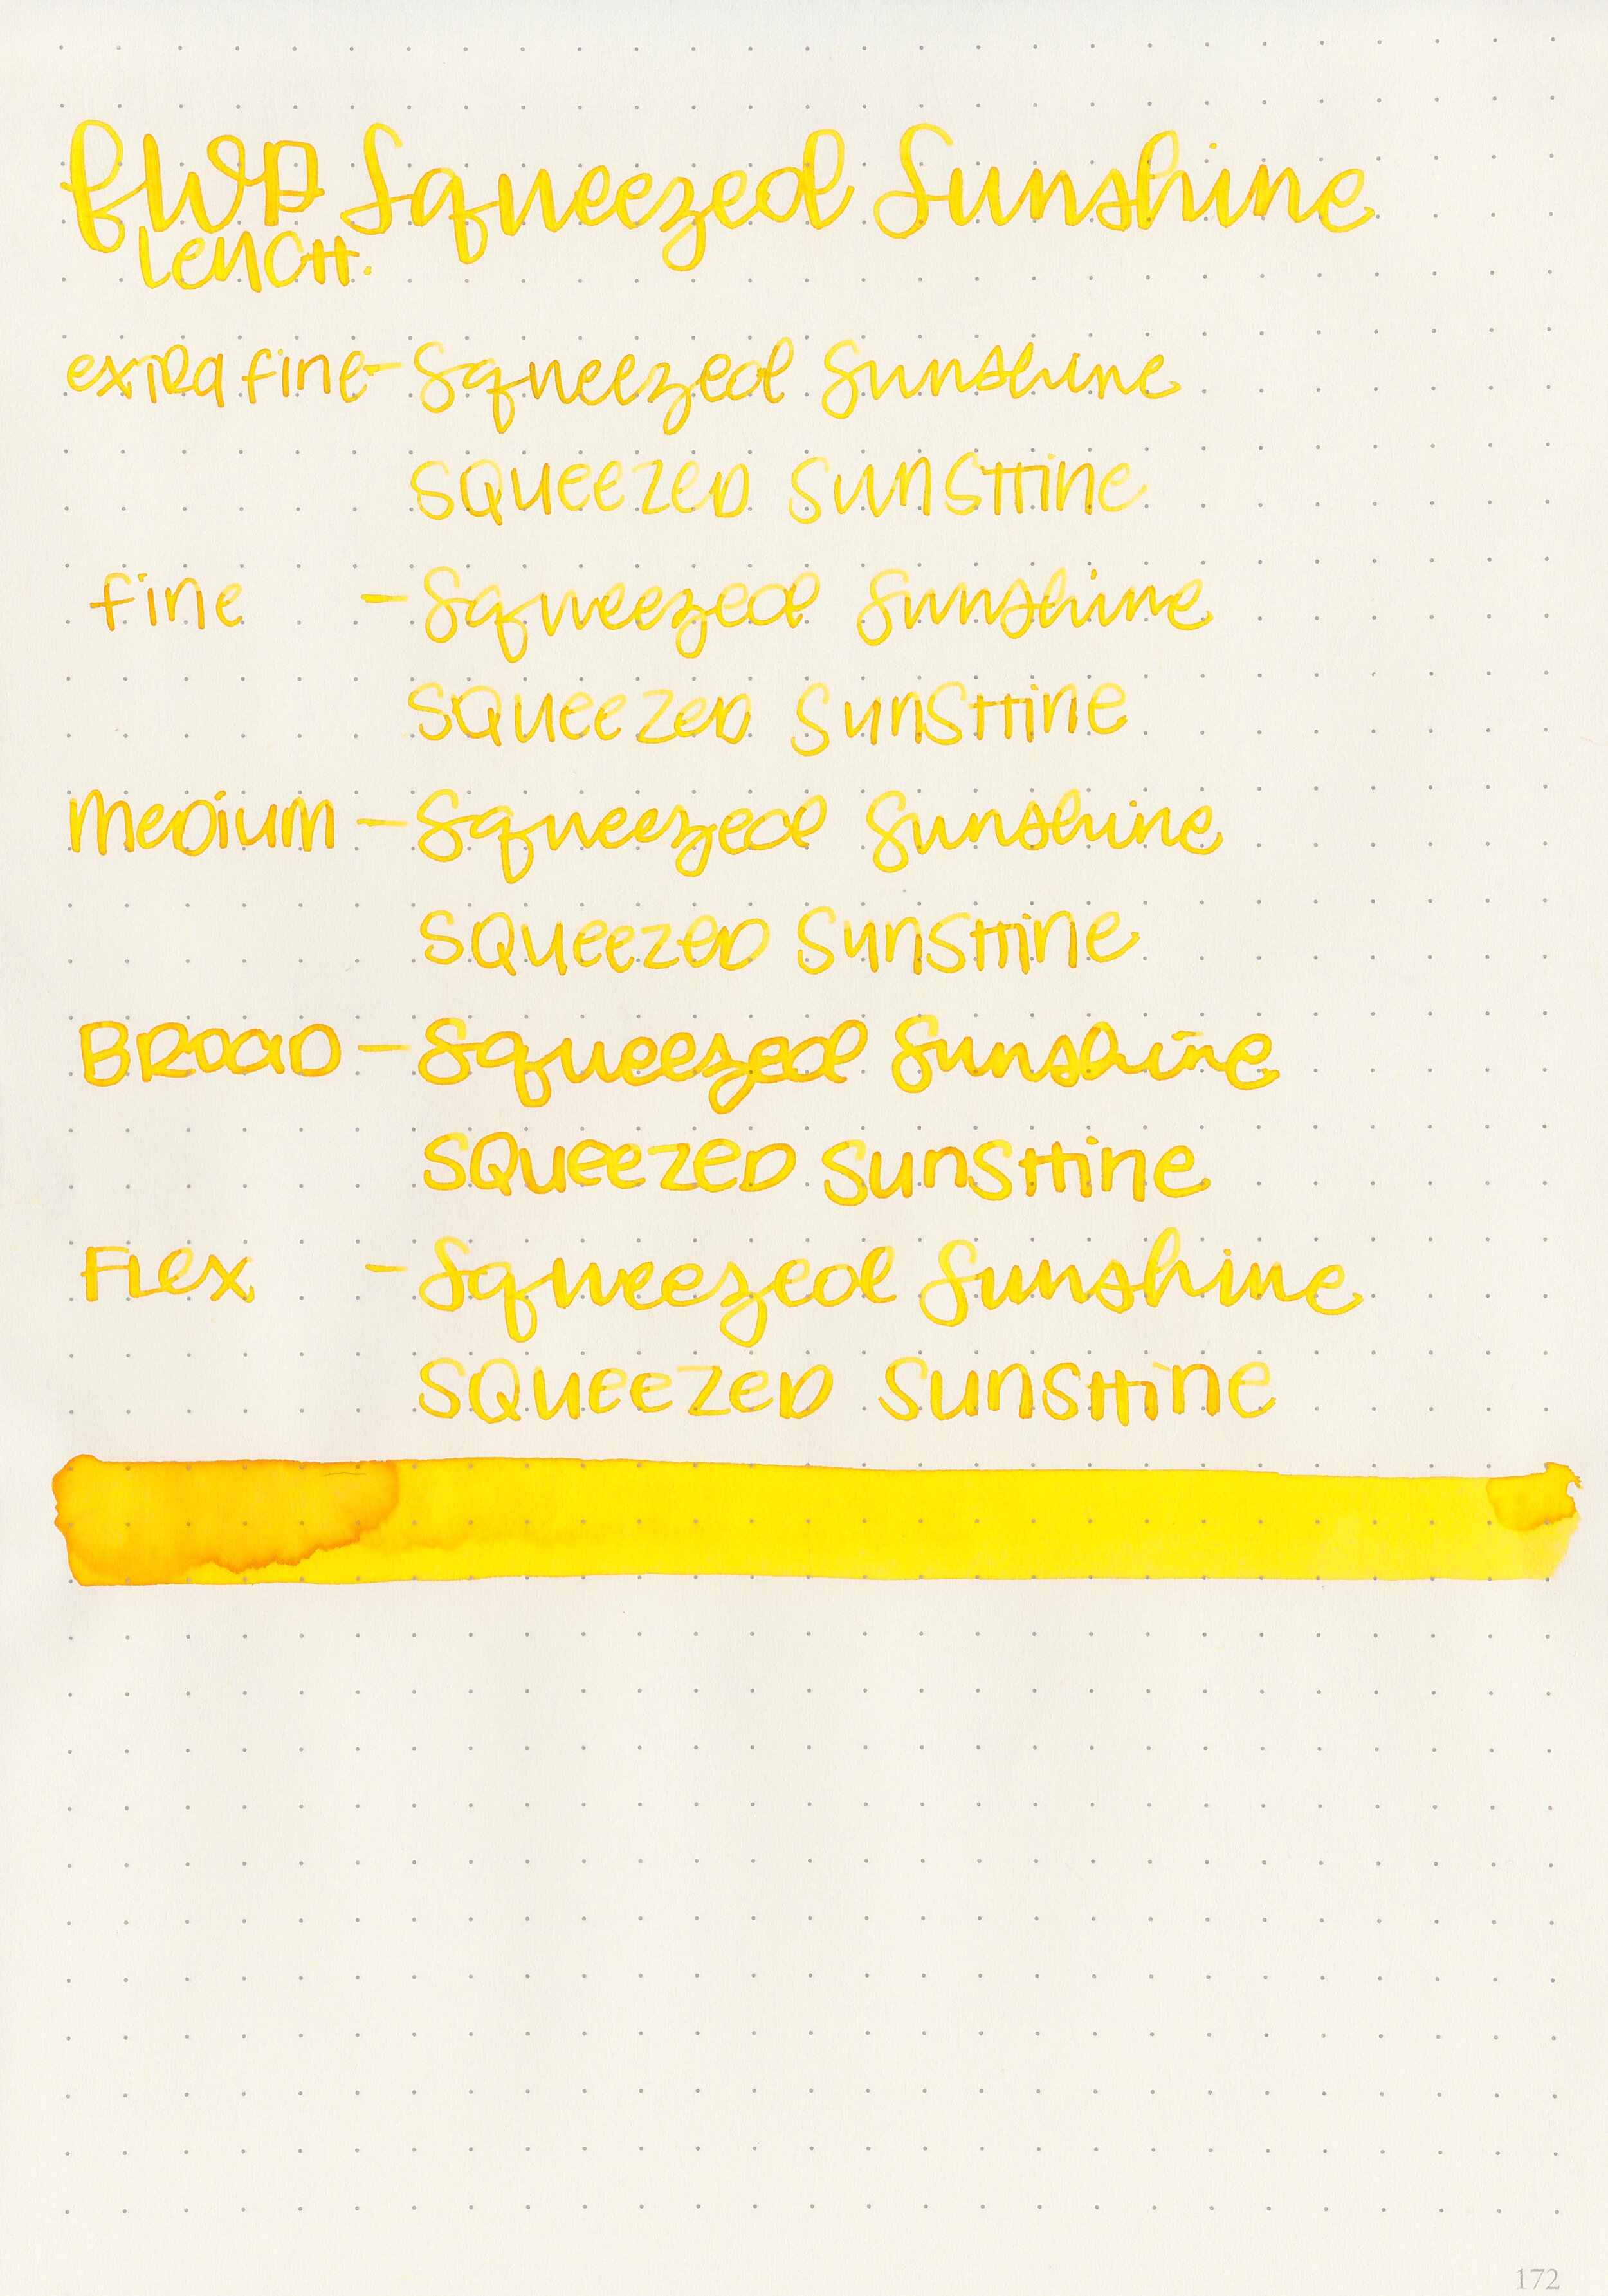 FWP Squeezed Sunshine
LEUCH.
extra fine - Squeezed Sunshine
SQUEEZED SUNSHINE
fine - Squeezed Sunshine
SQUEEZED SUNSHINE
medium - Squeezed Sunshine
SQUEEZED SUNSHINE
BROAD - Squeezed Sunshine
SQUEEZED SUNSHINE
FLEX - Squeezed Sunshine
SQUEEZED SUNSHINE
172